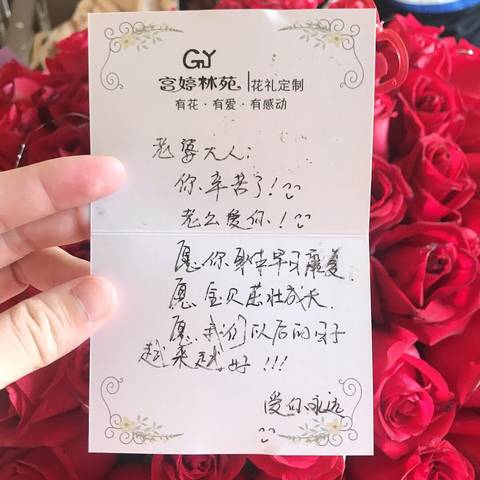 GY
宫婷林苑 | 花礼定制
有花·有爱·有感动
老婆大人:
你辛苦了!
老公爱你!
愿你身体早日康复.
愿宝贝茁壮成长.
愿我们以后的日子
越来越好!!!
爱你永远